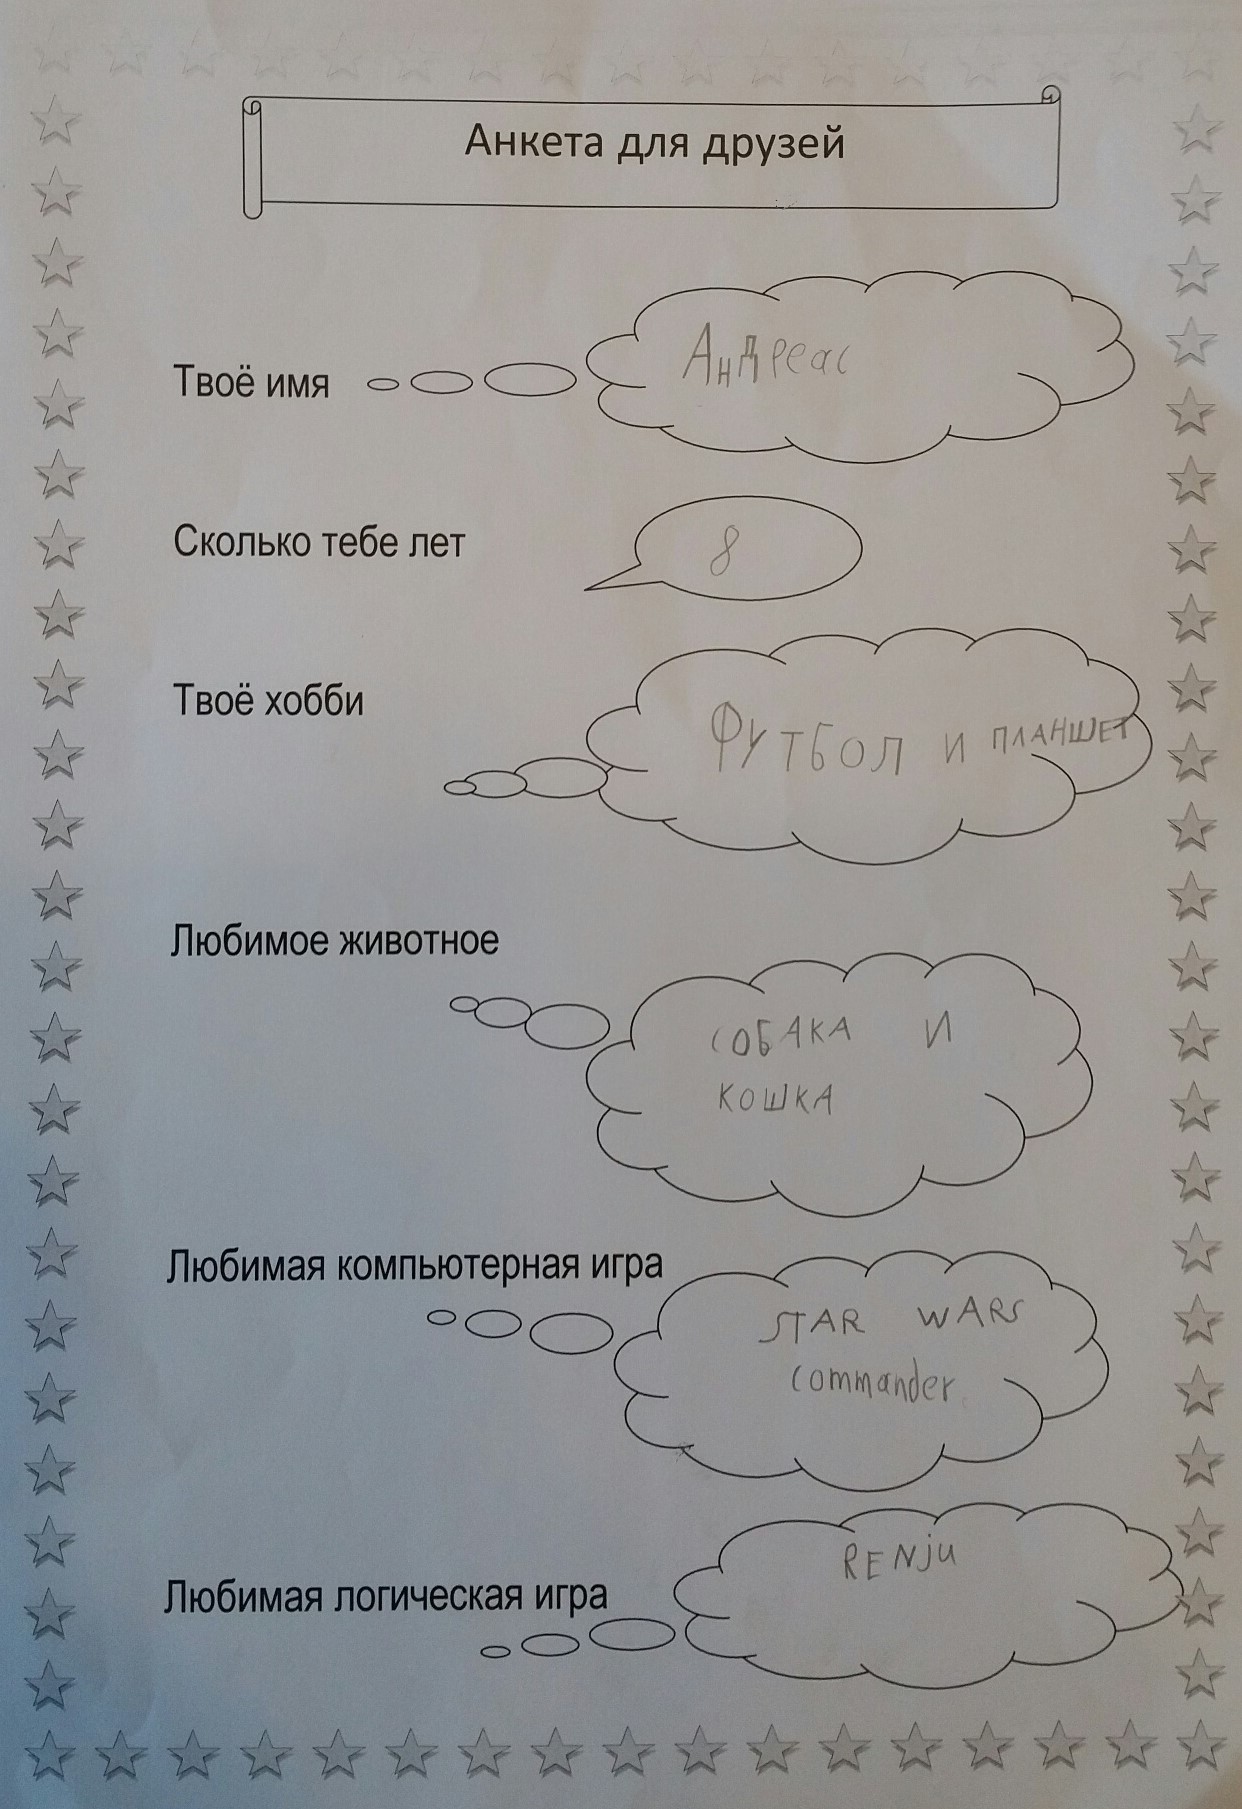 Анкета для друзей
Твоё имя
Андреас
Сколько тебе лет
8
Твоё хобби
Футбол и планшет
Любимое животное
СОБАКА И
КОШКА
Любимая компьютерная игра
STAR WARS
commander
Любимая логическая игра
RENju